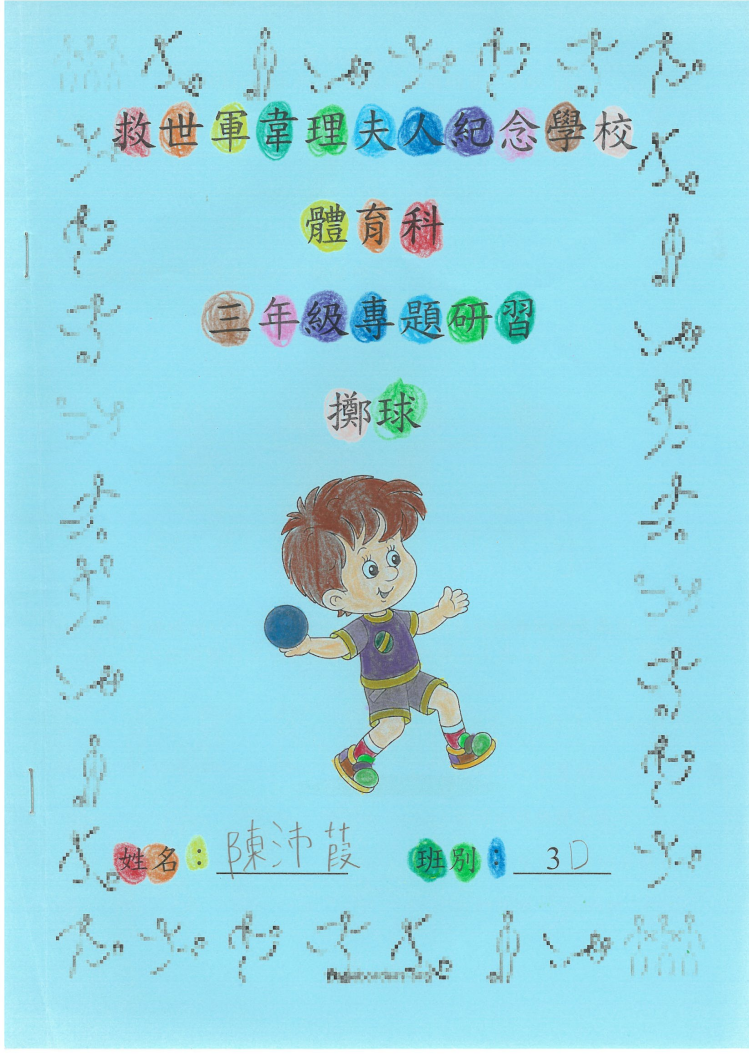 救世軍韋理夫人紀念學校
體育科
三年級專題研習
擲球
姓名：陳沛葭 班別：3D